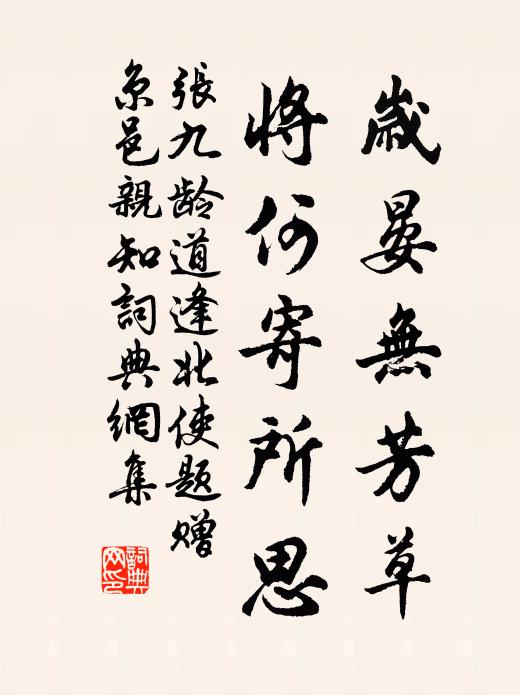 歲晏無芳草
將何寄所思
張九龄道逢北使题赠
京邑親知詞典網集
詞典网印